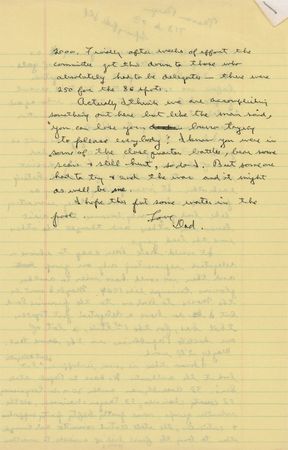 2000. Finally after weeks of effort the
committee got the down to those who
absolutely had to be delegates — there were
250 for the 86 spots.
Actually I think we are accomplishing
something out here but like the man said,
you can lose your trying
"to please everybody". I know you were in
some of the close quarter battles, bear some
scars & still hurt, so do I. But someone
had to try & end the war and it might
as well be me.
I hope the put some water in the
pool.
Love
Dad.